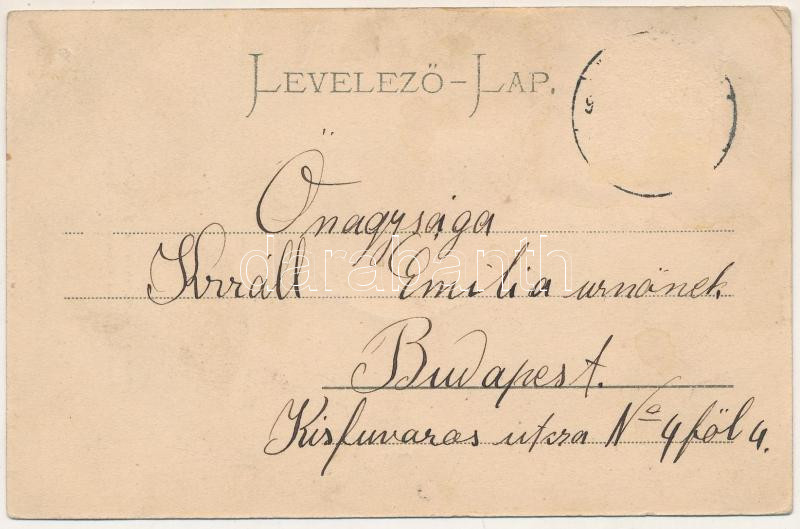 LEVELEZŐ-LAP.
9
Őnagysága
Krráll Emília urnőnek
Budapest.
Kisfuvaros utcza No 4 föl 4.
darabanth